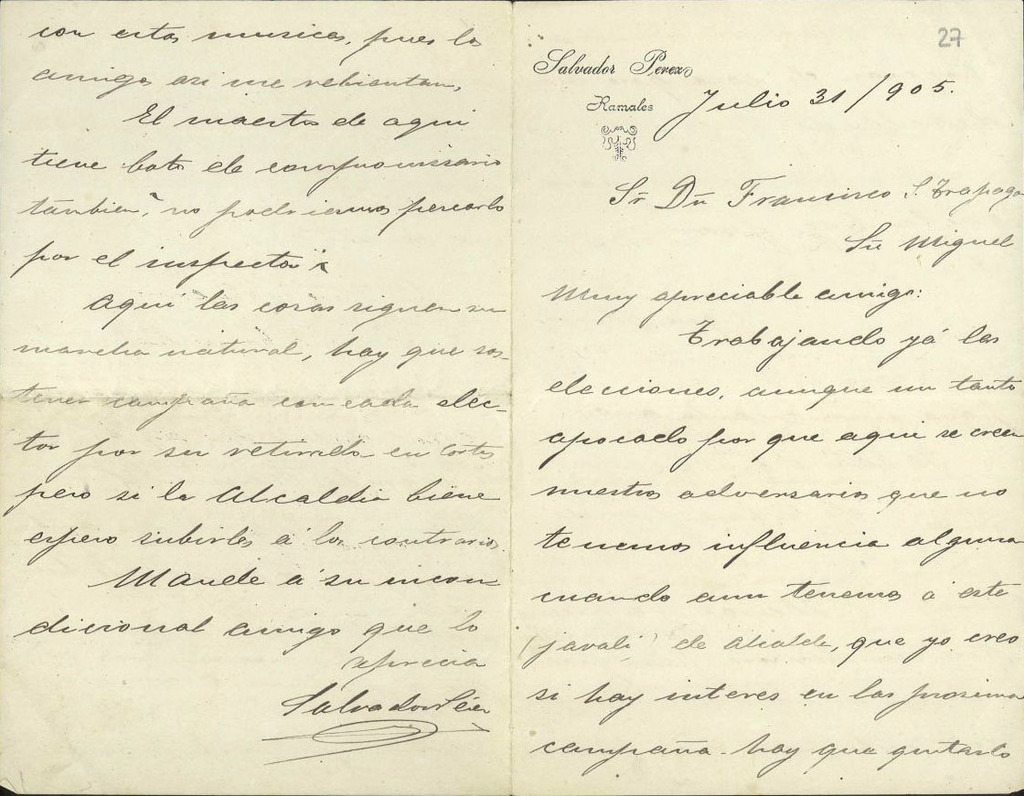 27
Salvador Perez
Ramales
Julio 31/905.
Sr Dn Francisco S. Trapaga
Sn Miguel
Muy apreciable amigo:
Trabajando yá las
elecciones, aunque un tanto
apocado por que aqui se creen
nuestros adversarios que no
tenemos influencia alguna
cuando aun tenemos á este
(javali) de Alcalde, que yo creo
si hay interes en las proxima
campaña hay que quitarlo
con estas musicas, pues los
amigos asi me rebientan,
El maestro de aqui
tiene boto de compromisario
tambien, no podriamos pescarlo
por el inspector
Aqui las cosas siguen su
marcha natural, hay que sos-
tener campaña con cada elec-
tor por su retirada en Cortes
pero si la Alcaldia biene
espero subirles á los contrarios.
Mande á su incon
dicional amigo que lo
aprecia
Salvador Perez